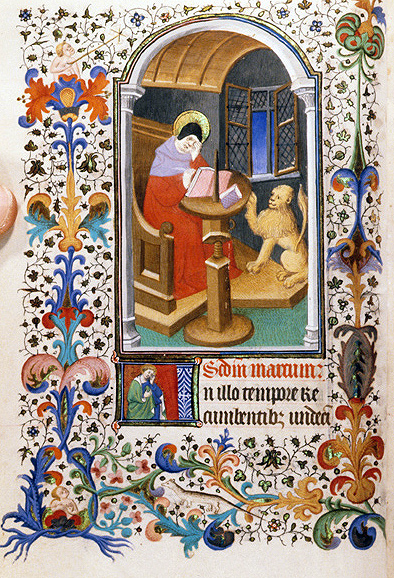 Scdm marcum:
n illo tempore Re
cumbentibꝫ undeci